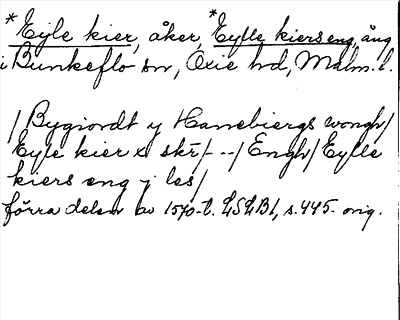 *Eyle kier, åker, *Eylle kierseng, äng
i Bunkeflo sn, Oxie hd, Malm. l.
/Bygiordt y Hannebiergs wongh/
Eyle kier x skr/- --/Engh/Eylle
kiers eng j les/
förra delen av 1570-t. LSLB1, s. 445. orig.